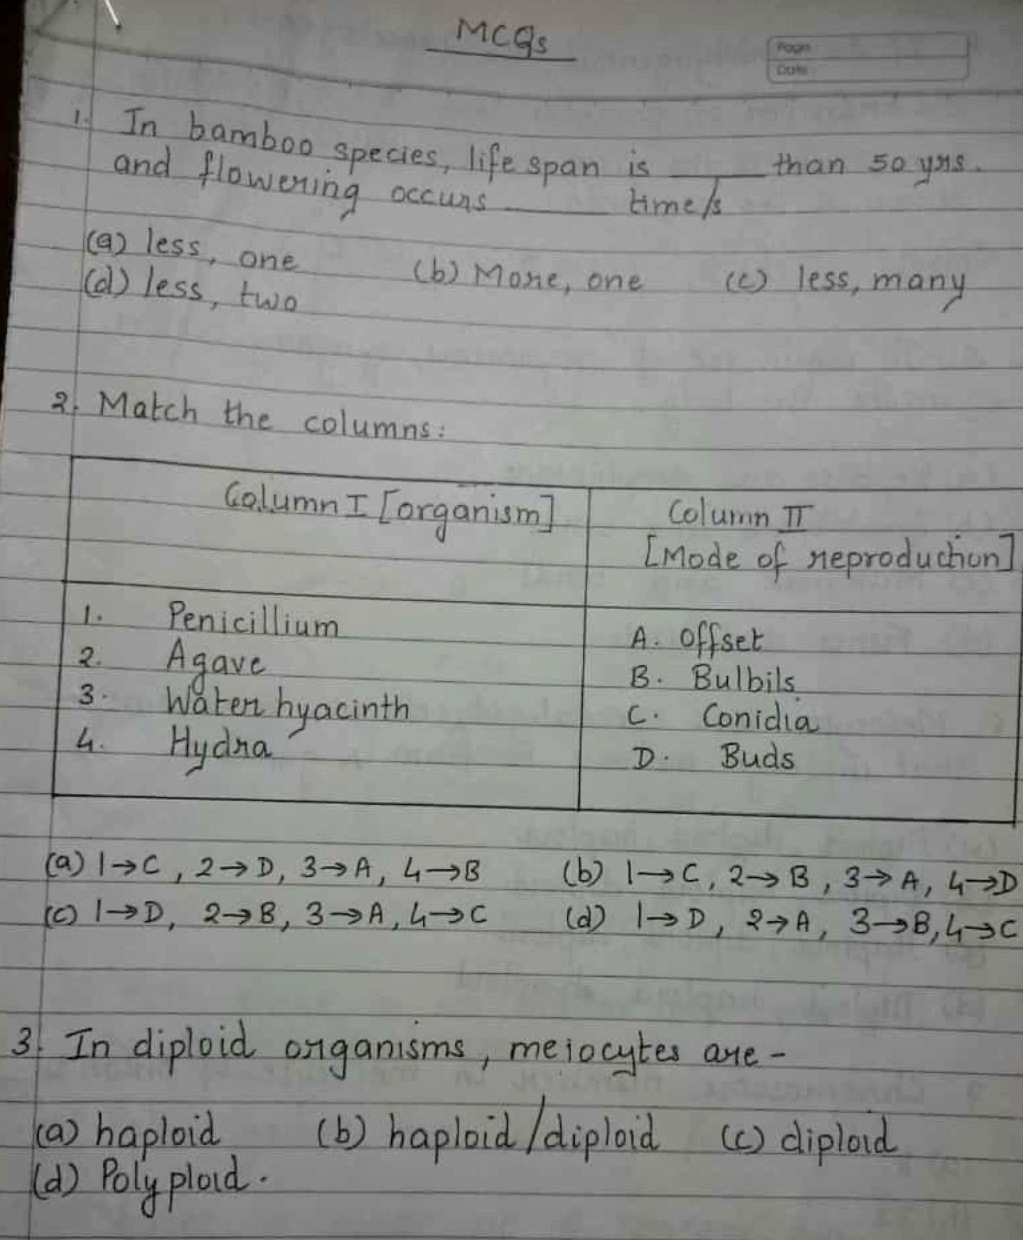 MCQs
Page
Date
1. In bamboo species, life span is ____ than 50 yrs.
and flowering occurs ____ time/s
(a) less, one (b) More, one (c) less, many
(d) less, two
2. Match the columns:
Column I [organism] Column II
[Mode of reproduction]
1. Penicillium A. Offset
2. Agave B. Bulbils
3. Water hyacinth C. Conidia
4. Hydra D. Buds
(a) 1→C, 2→D, 3→A, 4→B (b) 1→C, 2→B, 3→A, 4→D
(c) 1→D, 2→B, 3→A, 4→C (d) 1→D, 2→A, 3→B, 4→C
3. In diploid organisms, meiocytes are -
(a) haploid (b) haploid/diploid (c) diploid
(d) Polyploid.